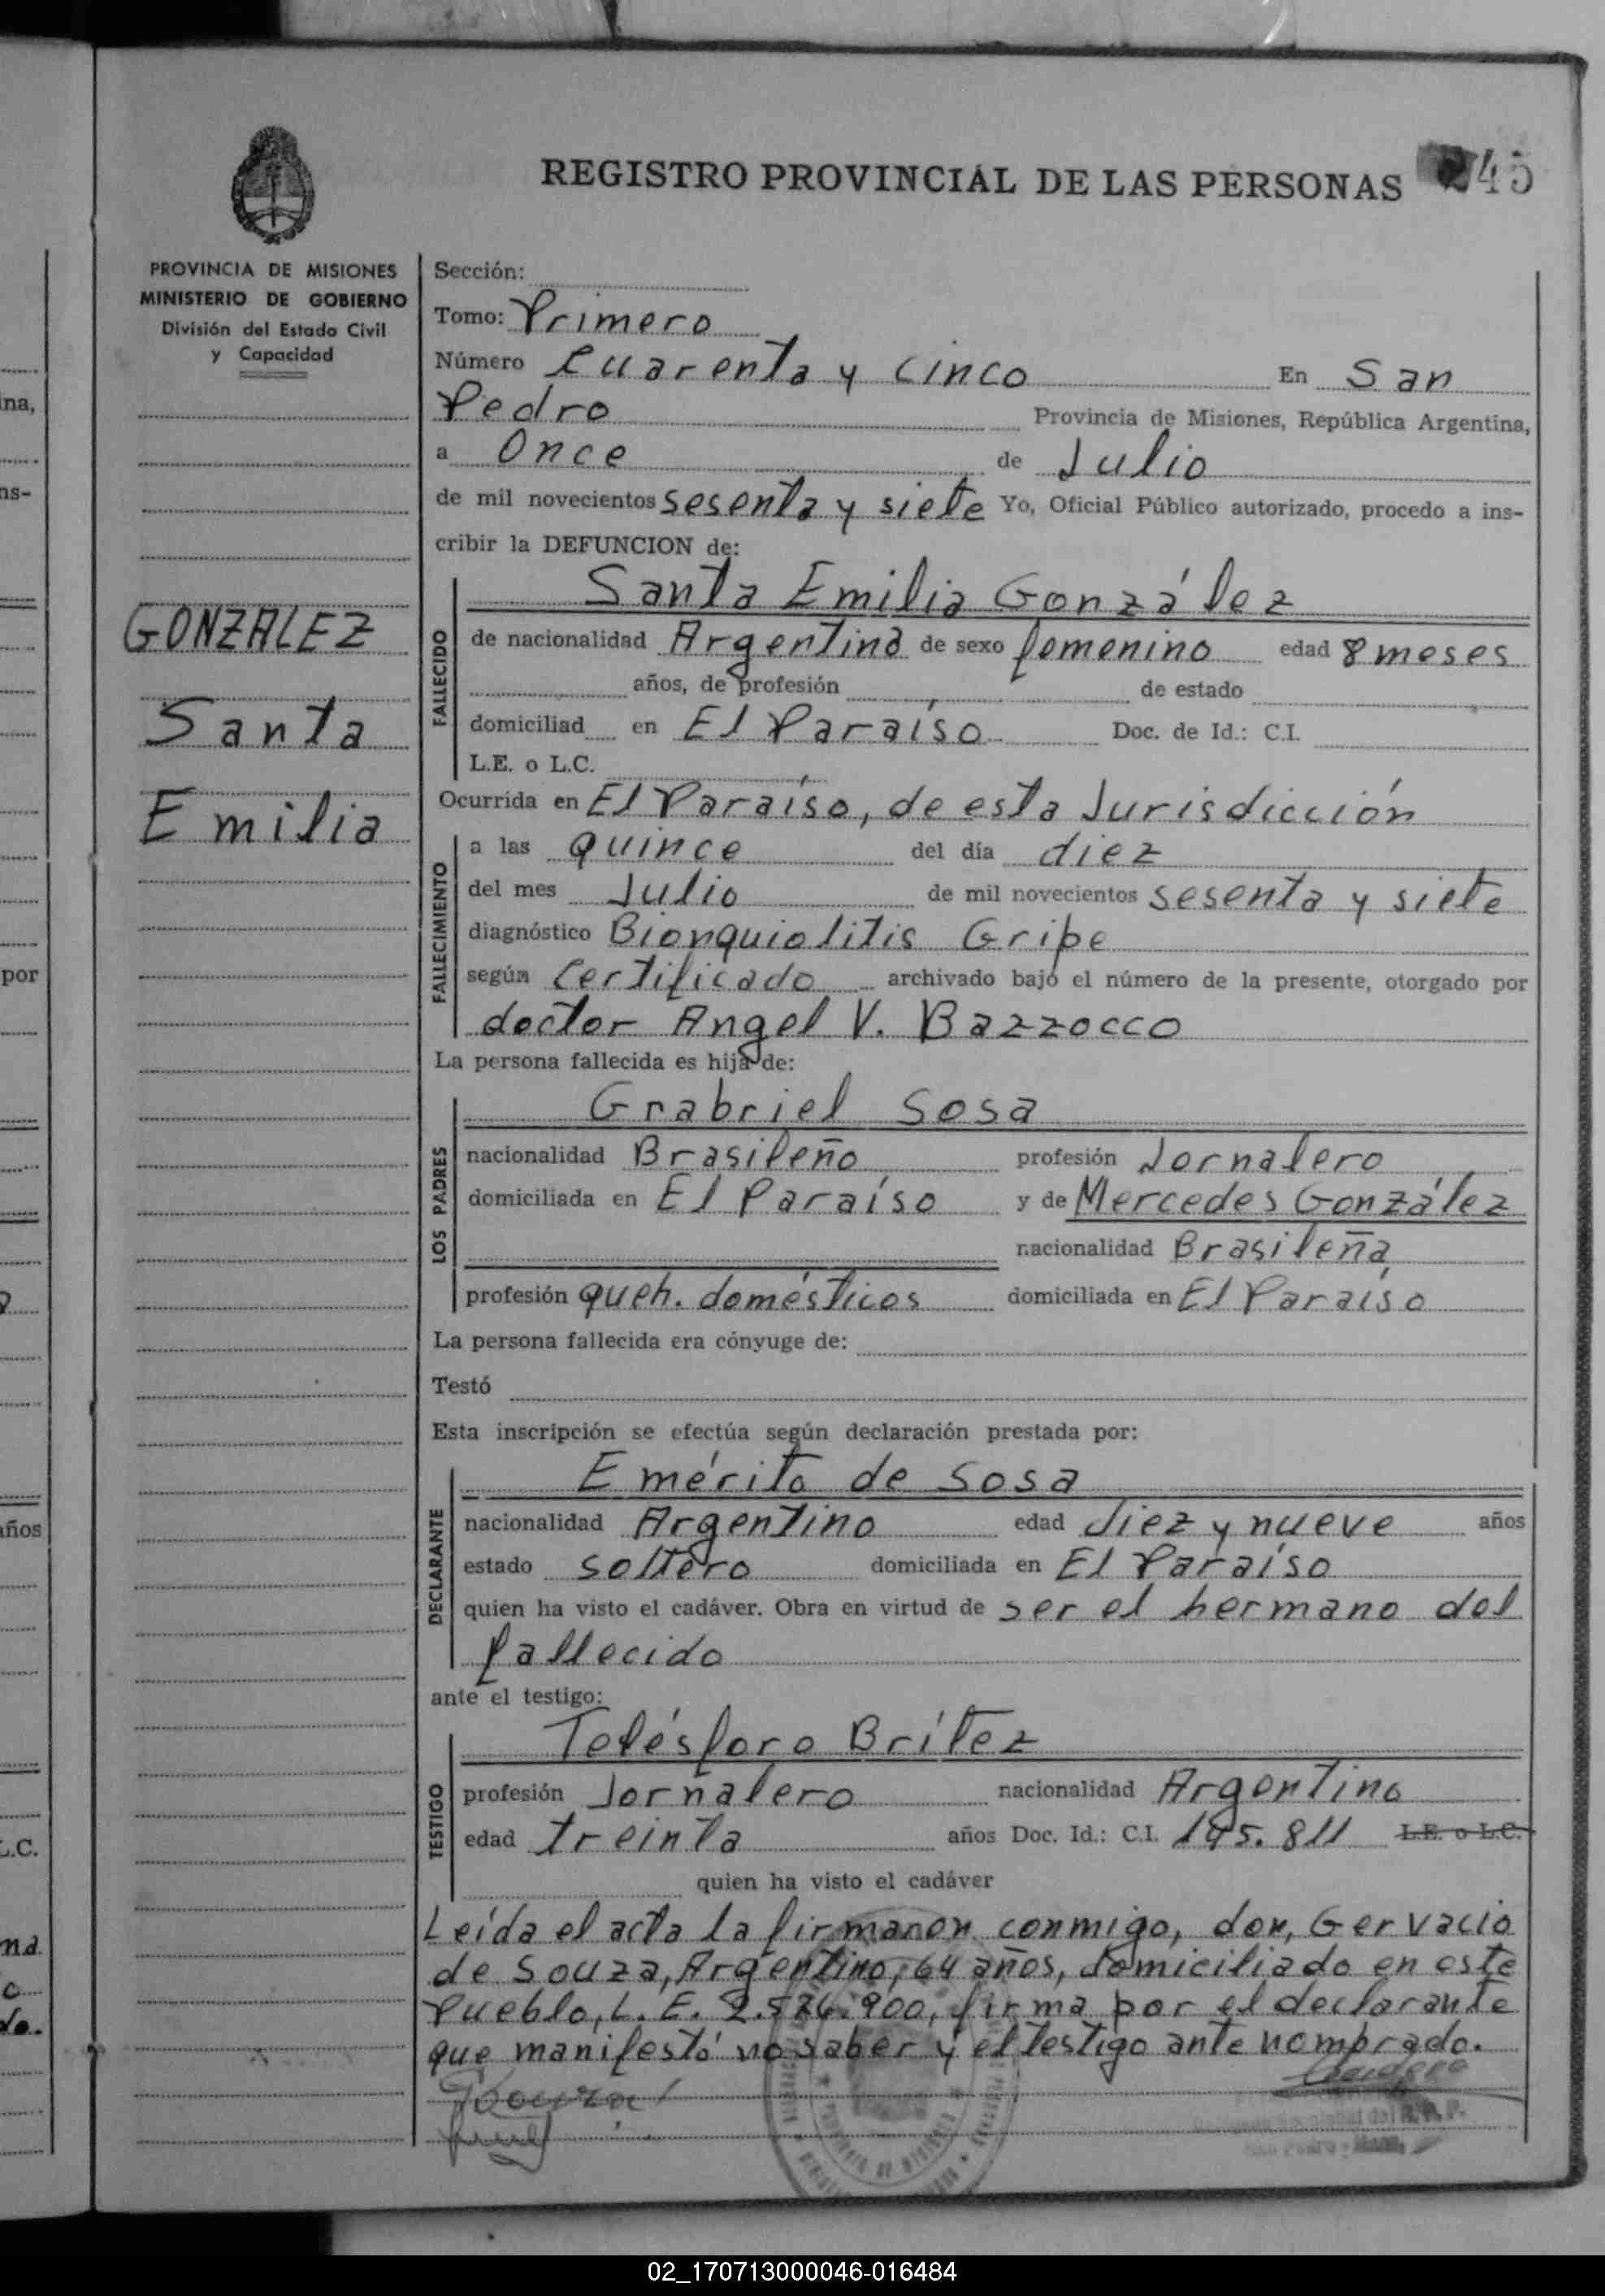 REGISTRO PROVINCIAL DE LAS PERSONAS 245
PROVINCIA DE MISIONES
MINISTERIO DE GOBIERNO
División del Estado Civil
y Capacidad
GONZALEZ
Santa
Emilia
Sección:
Tomo: Primero
Número Cuarenta y cinco En San
Pedro Provincia de Misiones, República Argentina,
a Once de Julio
de mil novecientos sesenta y siete Yo, Oficial Público autorizado, procedo a ins-
cribir la DEFUNCION de:
FALLECIDO
Santa Emilia González
de nacionalidad Argentina de sexo femenino edad 8 meses
años, de profesión de estado
domiciliad en El Paraíso Doc. de Id.: C.I.
L.E. o L.C.
Ocurrida en El Paraíso, de esta Jurisdicción
FALLECIMIENTO
a las quince del día diez
del mes Julio de mil novecientos sesenta y siete
diagnóstico Bionquiolitis Gripe
según Certificado archivado bajo el número de la presente, otorgado por
doctor Angel V. Bazzocco
La persona fallecida es hija de:
LOS PADRES
Grabriel Sosa
nacionalidad Brasileño profesión Jornalero
domiciliada en El Paraíso y de Mercedes González
nacionalidad Brasileña
profesión queh. domésticos domiciliada en El Paraíso
La persona fallecida era cónyuge de:
Testó
Esta inscripción se efectúa según declaración prestada por:
DECLARANTE
Emérito de Sosa
nacionalidad Argentino edad diez y nueve años
estado soltero domiciliada en El Paraíso
quien ha visto el cadáver. Obra en virtud de ser el hermano del
fallecido
ante el testigo:
TESTIGO
Telésforo Brítez
profesión Jornalero nacionalidad Argentino
edad treinta años Doc. Id.: C.I. 195.811 L.E. o L.C.
quien ha visto el cadáver
Leída el acta la firmanon conmigo, don, Gervacio
de Souza, Argentino, 64 años, domiciliado en este
Pueblo, L. E. 900, firma por el declarante
que manifestó no saber y el testigo ante nombrado.
02_170713000046-016484